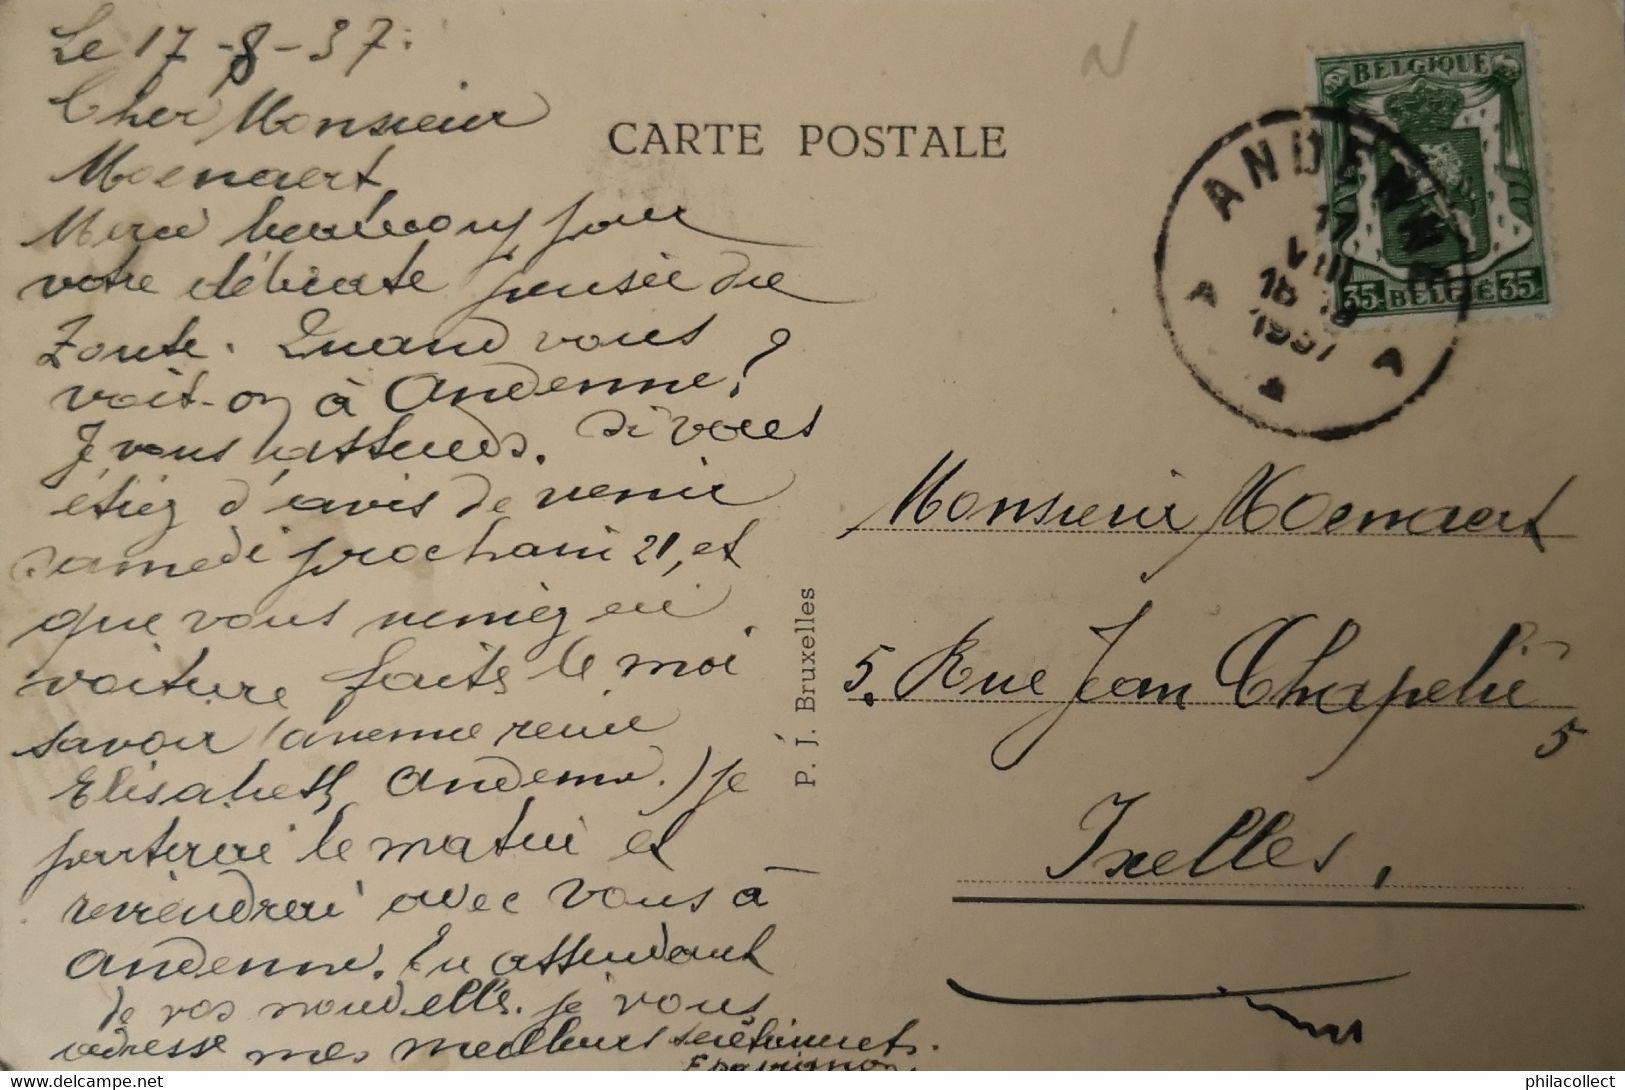 Le 17-8-37.
Cher Monsieur
Moenaert
Merci beaucoup pour
votre délicate pensée du
Zoute. Quand vous
voit-on à Andenne?
Je vous attends. Si vous
étiez d'avis de venir
samedi prochain 21, et
que vous veniez en
voiture faites le moi
savoir (avenue reine
Elisabeth Andenne.) je
partirai le matin et
reviendrai avec vous à
Andenne. En attendant
de vos nouvelles. je vous
adresse mes meilleurs sentiments.
CARTE POSTALE
P. J. Bruxelles
BELGIQUE
35 BELGIË 35
ANDENNE
17
VIII
18
1937
A A
Monsieur Moenaert
5. Rue Jean Chapelié
5
Ixelles,
philacollect